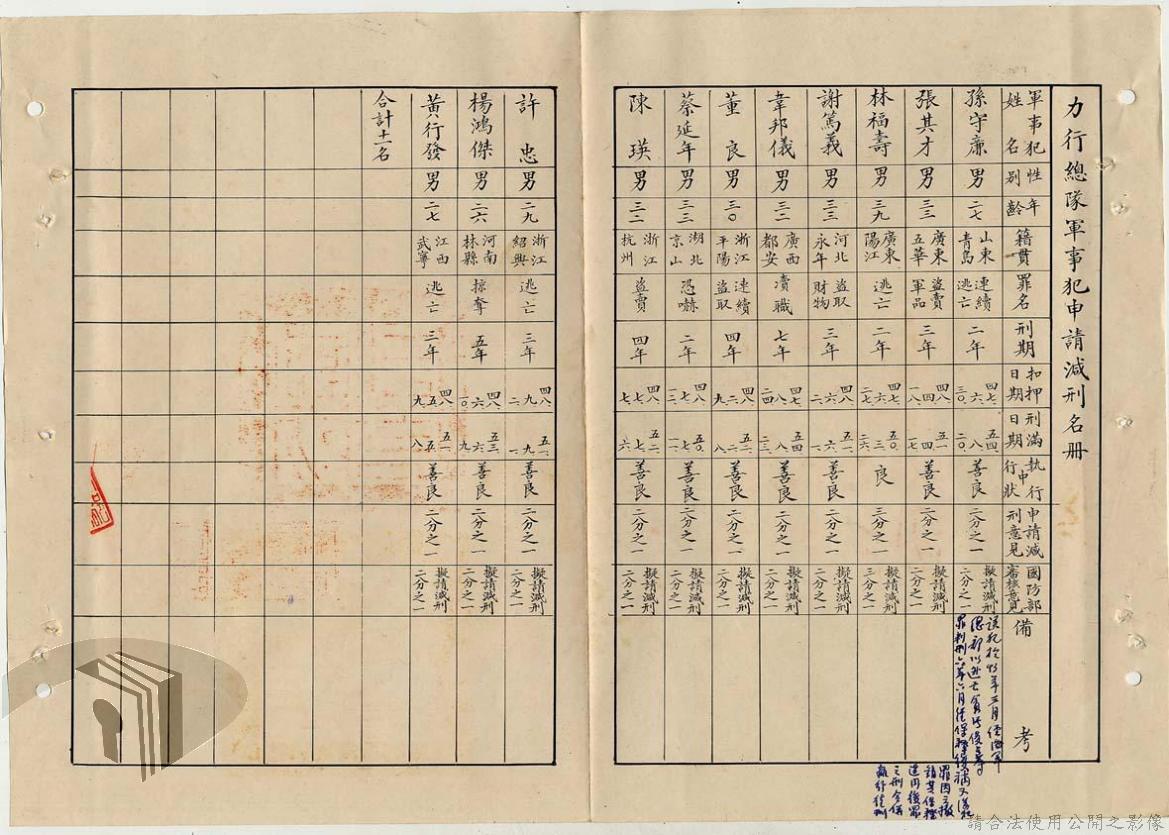 力行總隊軍事犯申請減刑名冊
軍事犯姓名 性別 年齡 籍貫 罪名 刑期 扣押日期 刑滿日期 執行中行狀 申請減刑意見 國防部審核意見 備考
孫守廉 男 二七 山東青島 連續逃亡 二年 四七、六、三〇 五四、八、二〇 善良 二分之一 擬請減刑二分之一
張其才 男 三三 廣東五華 盜賣軍品 三年 四八、四、一八 五一、四、一七 善良 二分之一 擬請減刑二分之一
林福壽 男 三九 廣東陽江 逃亡 二年 四七、六、二七 五〇、三、二六 良 三分之一 擬請減刑三分之一
謝篤義 男 三三 河北永年 盜取財物 三年 四八、六、二 五一、六、一 善良 二分之一 擬請減刑二分之一
韋邦儀 男 三二 廣西都安 瀆職 七年 四七、八、二四 五四、八、二三 善良 二分之一 擬請減刑二分之一
董良 男 三〇 浙江平陽 連續盜取 四年 四八、二、九 五二、二、八 善良 二分之一 擬請減刑二分之一
蔡延年 男 三三 湖北京山 恐嚇 二年 四八、七、一二 五〇、七、一一 善良 二分之一 擬請減刑二分之一
陳瑛 男 三二 浙江杭州 盜賣 四年 四八、七、七 五二、七、六 善良 二分之一 擬請減刑二分之一
許忠 男 二九 浙江紹興 逃亡 三年 四八、九、二 五一、九、一 善良 二分之一 擬請減刑二分之一
楊鴻傑 男 二六 河南林縣 掠奪 五年 四八、六、一〇 五三、六、九 善良 二分之一 擬請減刑二分之一
黃行發 男 二七 江西武寧 逃亡 三年 四八、五、九 五一、五、八 善良 二分之一 擬請減刑二分之一
合計十一名
請合法使用公開之影像